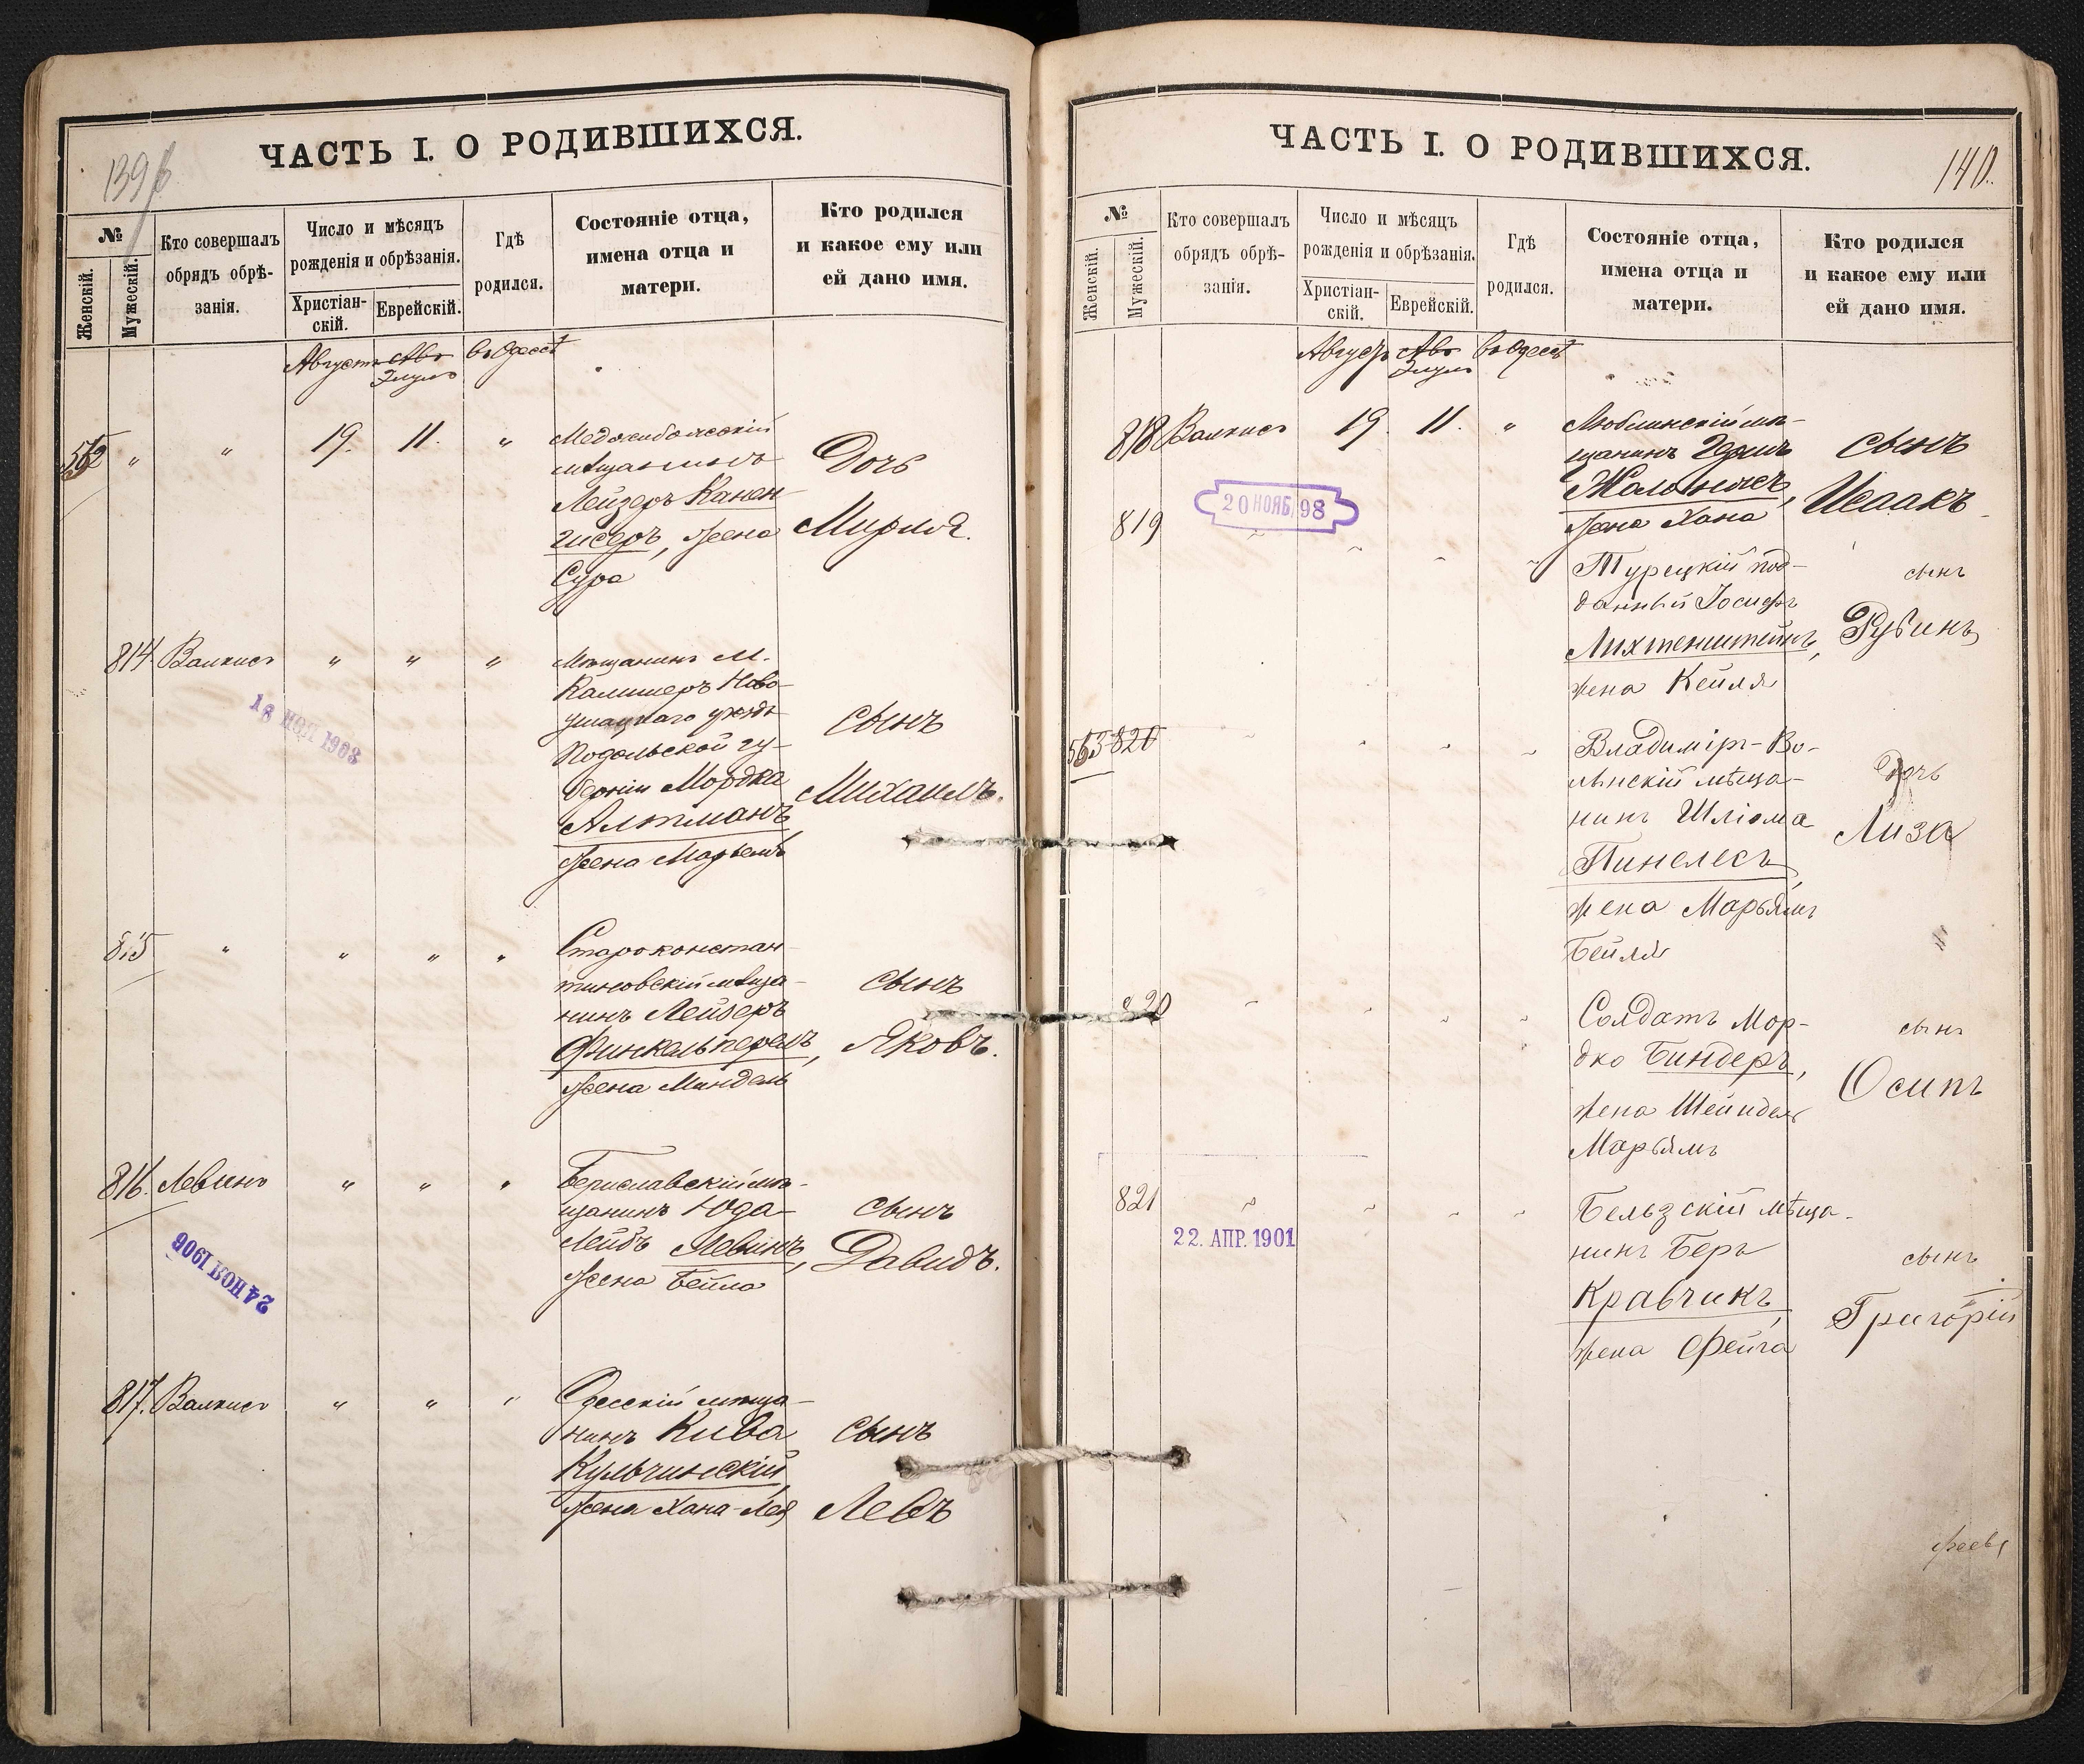 139б
ЧАСТЬ I. О РОДИВШИХСЯ.
№
Женскій.
Мужескій.
Кто совершалъ
обрядъ обрѣ-
занія.
Число и мѣсяцъ
рожденія и обрѣзанія.
Христіан-
скій.
Еврейскій.
Гдѣ
родился.
Состояніе отца,
имена отца и
матери.
Кто родился
и какое ему или
ей дано имя.
Августъ Авъ въ Одессѣ
Элулъ
562 " " 19. 11. "
Меджибожскій
мѣщанинъ
Лейзеръ Канен-
гисеръ, жена
Сура
Дочь
Мирля.
814. Валкисъ " " "
Мѣщанинъ м.
Калишеръ Ново-
ушицкаго уѣзда
Подольской гу-
берніи Мордка
Алтманъ
жена Марьемъ
сынъ
Михаилъ.
18 1903
815 " " " "
Староконстан-
тиновскій мѣща-
нинъ Лейзеръ
Финкельперель,
жена Миндель
сынъ
Яковъ.
816. Левинъ " " "
Бериславскій мѣ-
щанинъ Юда-
Лейбъ Левинъ,
жена Бейла
сынъ
Давидъ.
24 1906
817. Валкисъ " " "
Одесскій мѣща-
нинъ Кива
Кульчинскій,
жена Хана-Лея
сынъ
Левъ
140.
ЧАСТЬ I. О РОДИВШИХСЯ.
№
Женскій.
Мужескій.
Кто совершалъ
обрядъ обрѣ-
занія.
Число и мѣсяцъ
рожденія и обрѣзанія.
Христіан-
скій.
Еврейскій.
Гдѣ
родился.
Состояніе отца,
имена отца и
матери.
Кто родился
и какое ему или
ей дано имя.
Августъ Авъ въ Одессѣ
Элулъ
818 Валкисъ 19. 11. "
Люблинскій мѣ-
щанинъ
жена Хана
сынъ
Исаакъ
20 НОЯБ 98
819
Турецкій под-
данный Іосифъ
Лихтенштейнъ,
жена Кейля
сынъ
Рубинъ
563 820
Владиміръ-Во-
лынскій мѣща-
нинъ Шліома
Пинелесъ,
жена Марьямъ
Бейля
дочь
Лиза
820
Солдатъ Мор-
дко Биндеръ,
жена Шейндель
Марьямъ
сынъ
Осипъ
821
22. АПР. 1901
Бельзскій мѣща-
нинъ Беръ
Кравчикъ,
жена Фейга
сынъ
Григорій